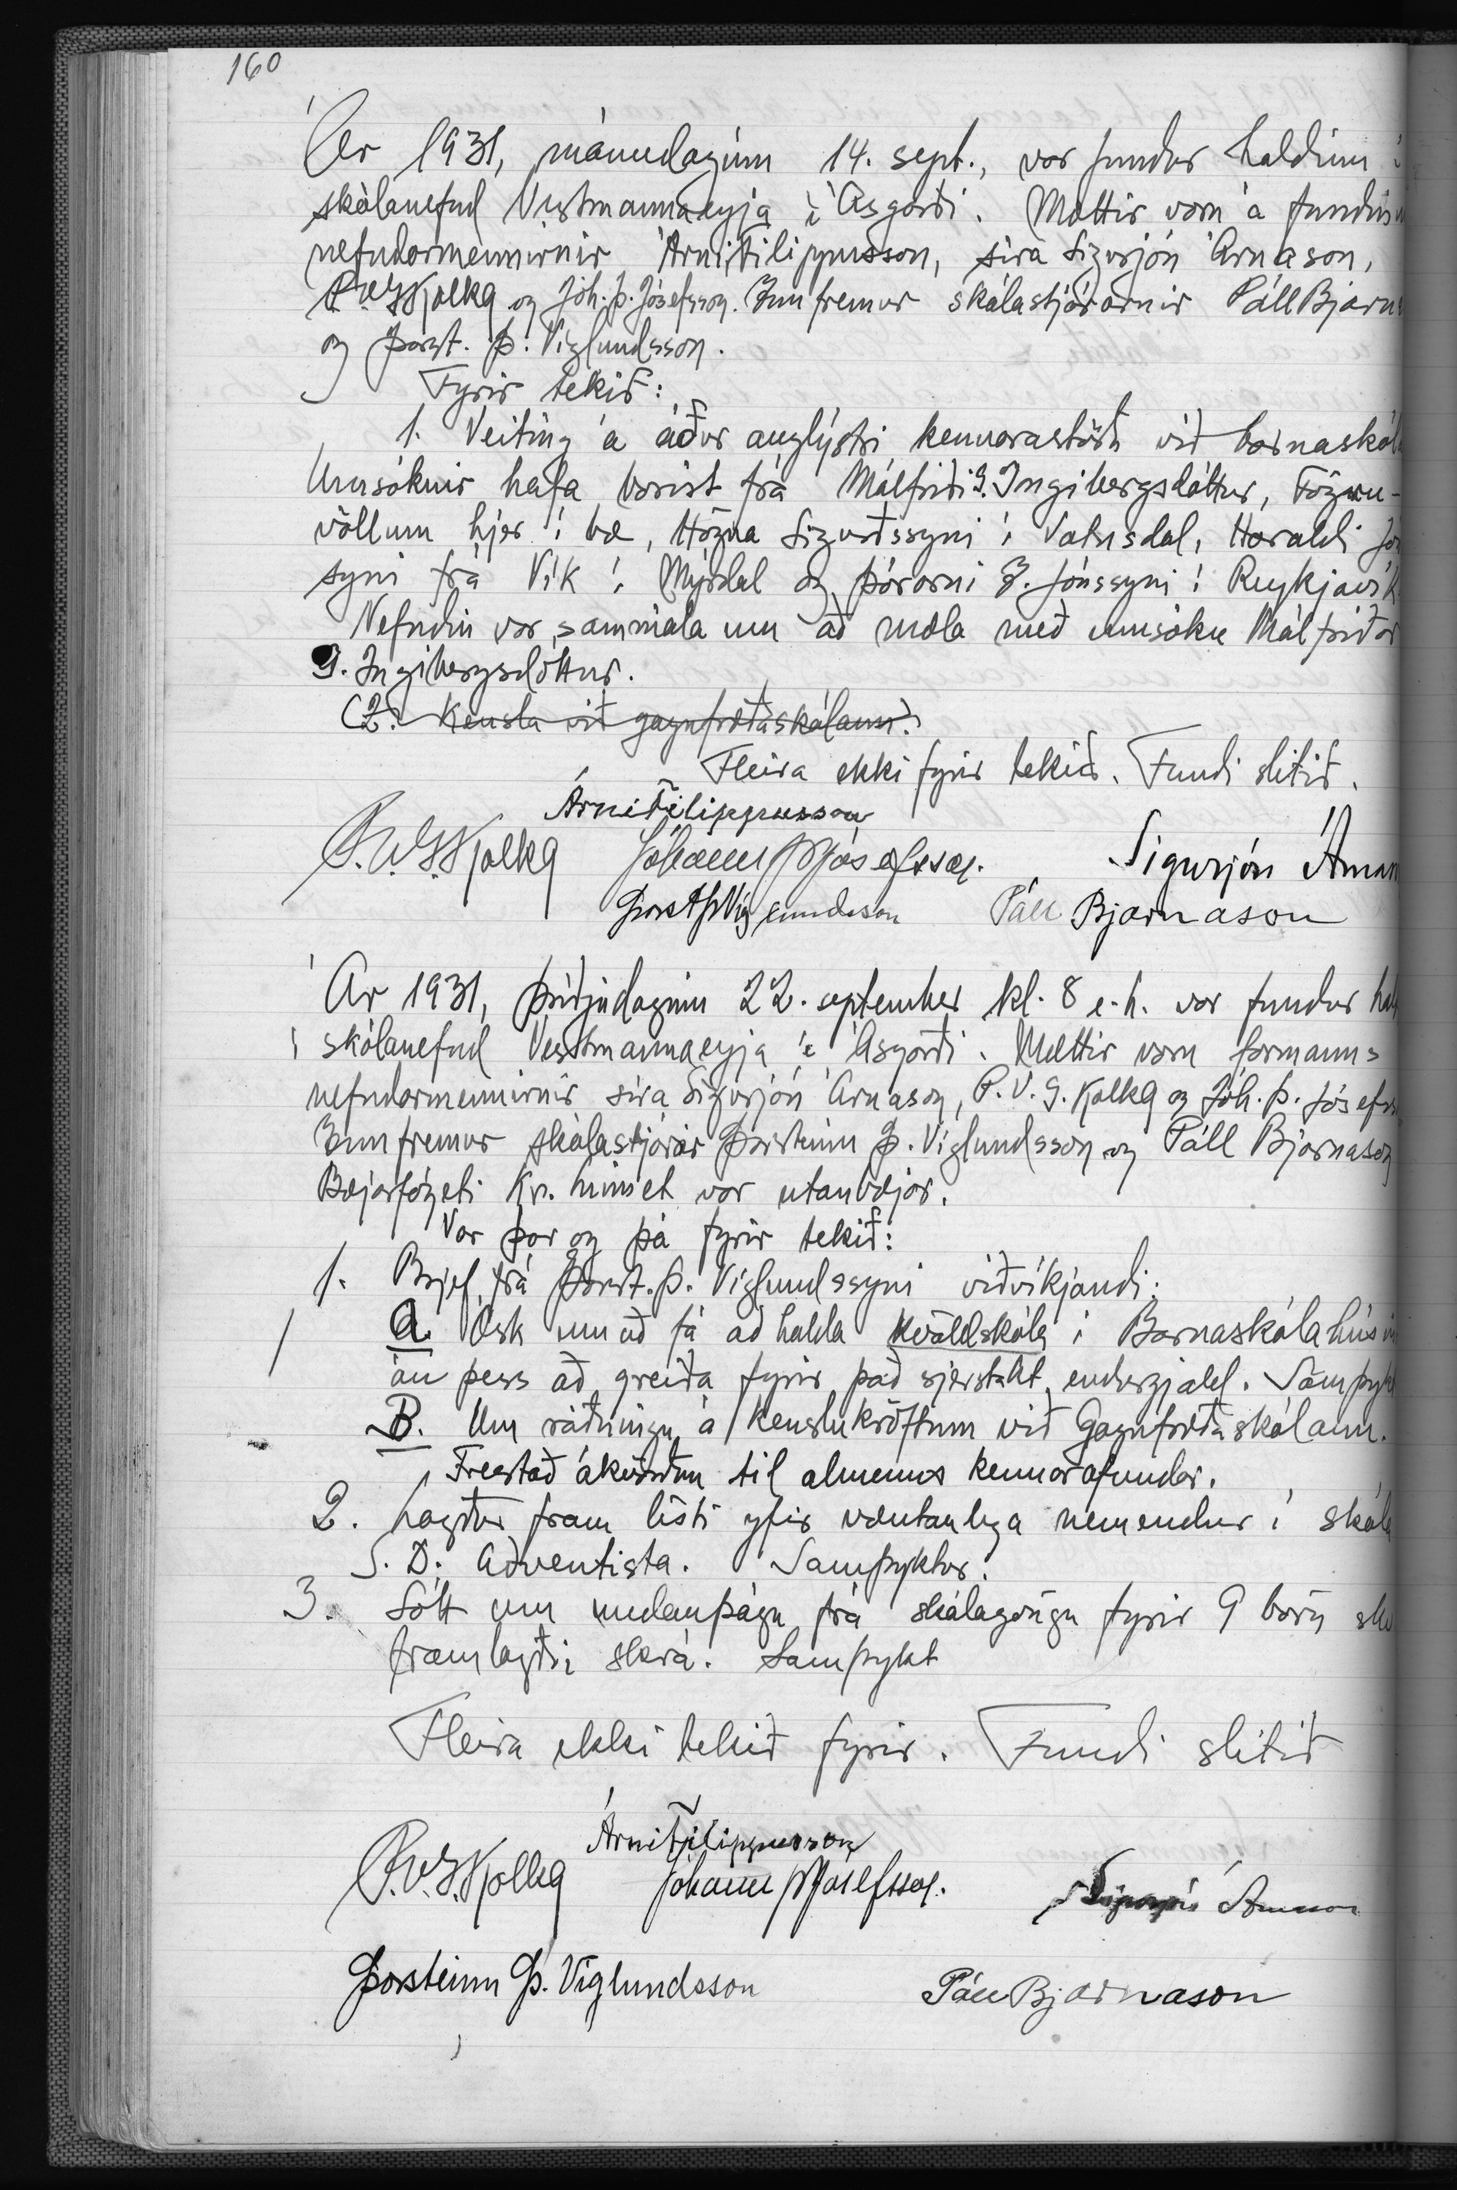 160
Ár 1931, mánudaginn 14. sept., var fundur haldinn í
skólanefnd Vestmannaeyja í Ásgarði. Mættir voru á fundin
nefndarmennirnir Árni Filippusson, síra Sigurjón Árnason,
P.V.G. Kolka og Jóh. Þ. Jósefsson. Ennfremur skólastjórarnir Páll Bjarna
og Þorst. Þ. Víglundsson.
Fyrir tekið:
1. Veiting á áður auglýstri kennarastöðu við barnaskól
Umsóknir hafa borist frá Málfríði G. Ingibergsdóttur, Fögru-
völlum hjer í bæ, Högna Sigurðssyni í Vatnsdal, Haraldi Jó
syni frá Vík í Mýrdal og Þórarni G. Jónssyni í Reykjavík
Nefndin var sammála um að mæla með umsókn Málfríðar
G. Ingibergsdóttur.
(2. Kensla við gagnfræðaskólann.)
Fleira ekki fyrir tekið. Fundi slitið.
Árni Filippusson
P.V.G. Kolka Jóhann Þ Jósefsson. Sigurjón Árnason
Þorst Þ Víglundsson Páll Bjarnason
Ár 1931, þriðjudaginn 22. september kl. 8 e.h. var fundur hal
í skólanefnd Vestmannaeyja í Ásgarði. Mættir voru formann,
nefndarmennirnir síra Sigurjón Árnason, P.V.G. Kolka og Jóh. Þ. Jósefss
Ennfremur skólastjórar Þorsteinn Þ. Víglundsson og Páll Bjarnason
Bæjarfógeti Kr. Linnet var utanbæjar.
Var þar og þá fyrir tekið:
1. Brjef frá Þorst. Þ. Víglundssyni viðvíkjandi:
A. Ósk um að fá að halda kvöldskóla í Barnaskólahúsin
án þess að greiða fyrir það sjerstakt endurgjald. Samþykt
B. Um ráðningu á kenslukröftum við Gagnfræðaskólann.
Frestað ákvörðun til almenns kennarafundar.
2. Lagður fram listi yfir væntanlega nemendur í skóla
S. D. Aðventista. Samþyktur.
3. Sótt um undanþágu frá skólagöngu fyrir 9 börn sbr
framlagðri skrá. Samþykt
Fleira ekki tekið fyrir. Fundi slitið
Árni Filippusson
P.V.G. Kolka Jóhann Þ Jósefsson. Sigurjón Árnason
Þorsteinn Þ. Víglundsson Páll Bjarnason